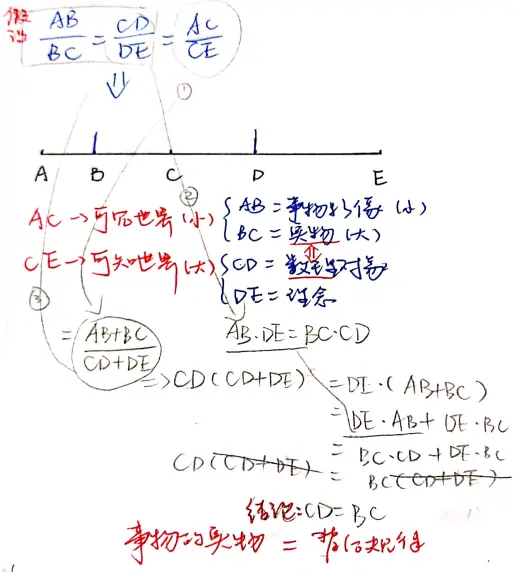 假设 AB/BC = CD/DE = AC/CE
①
A B C D E
②
AC → 可见世界(小) { AB = 事物影像(小)
BC = 实物(大)
CE → 可知世界(大) { CD = 数学对象
DE = 理念
③
= AB+BC/CD+DE AB·DE = BC·CD
=> CD(CD+DE) = DE·(AB+BC)
= DE·AB + DE·BC
= BC·CD + DE·BC
CD(CD+DE) = BC(CD+DE)
结论:CD=BC
事物的实物 =